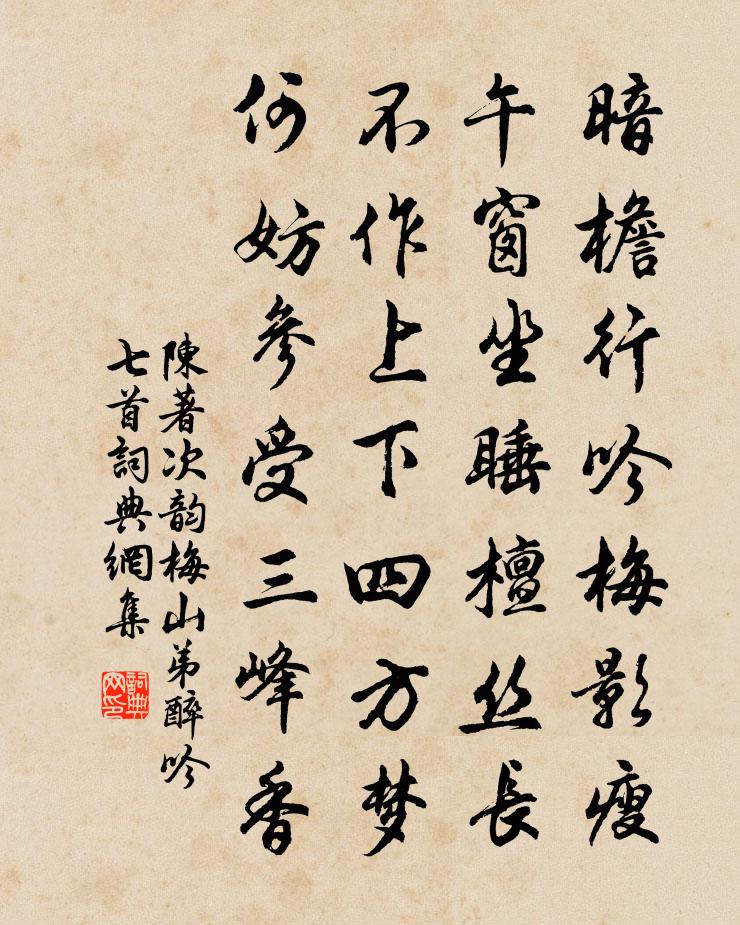 暗檐行吟梅影瘦
午窗坐睡檀丝長
不作上下四方梦
何妨參受三峰香
陳著次韵梅山弟醉吟
七首詞典網集
詞典
网印